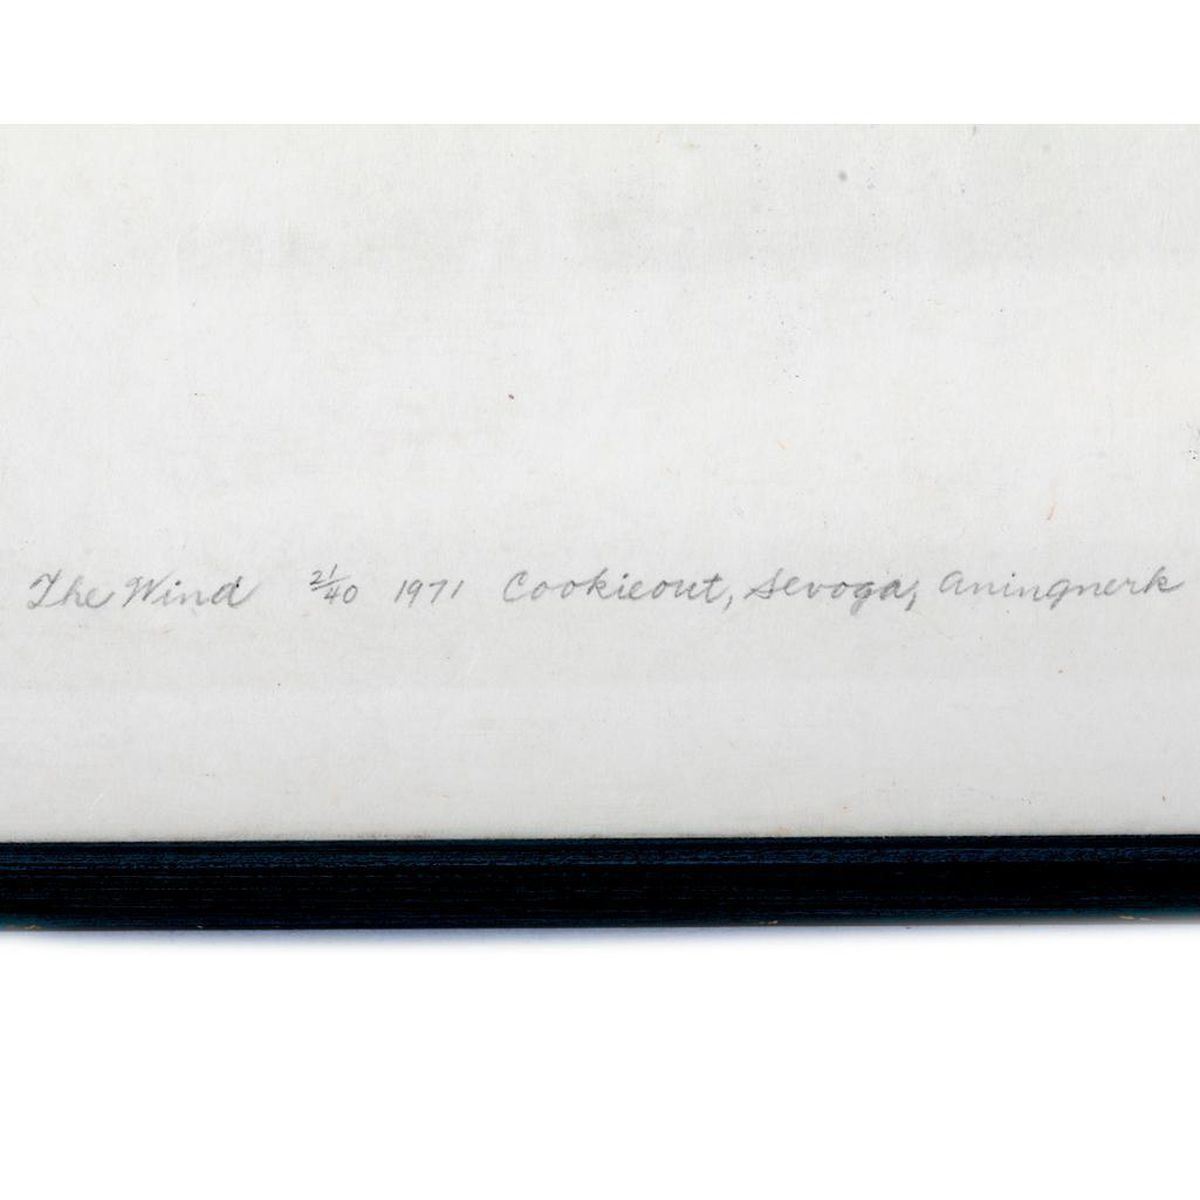 The Wind 21/40 1971 Cookieout, Sevoga, Aningnerk